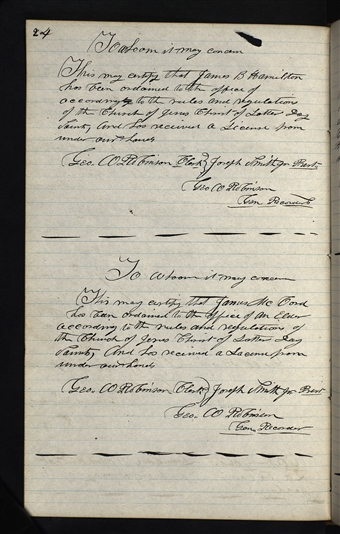 24
To whom it may concern
This may certify that James B Hamilton
has been ordained to the office of
according to the rules and regulations
of the Church of Jesus Christ of Latter Day
Saints, And has received a License from
under our hands
Geo. W Robinson Clerk } Joseph Smith Jr Prest
Geo W Robinson
Gen Recorder
To whom it may concern
This may certify that James Mc Cord
has been ordained to the office of an Elder
according to the rules and regulations of
the Church of Jesus Christ of Latter Day
Saints, And has received a License from
under our hands
Geo. W Robinson Clerk } Joseph Smith Jr Prest
Geo W Robinson
Gen. Recorder